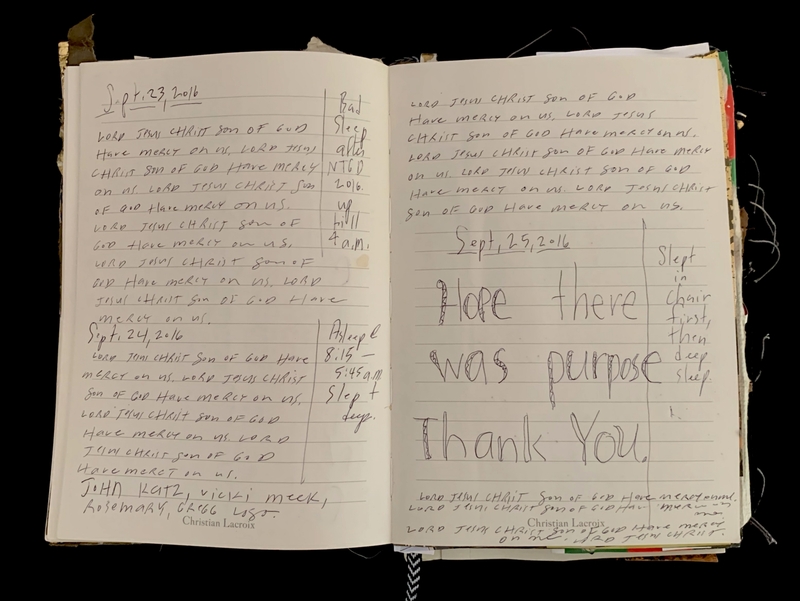 Sept. 23, 2016
LORD JESUS CHRIST SON OF GOD
Have mercy on us. LORD JESUS
CHRIST SON OF GOD Have MERCY
on us LORD JESUS CHRIST SON
OF GOD Have mercy on us.
LORD JESUS CHRIST SON OF
GOD Have mercy on us.
LORD JESUS CHRIST SON OF
GOD Have mercy on us. LORD
JESUS CHRIST SON OF GOD Have
mercy on us.
Bad
Sleep
after
NTGD
2016.
up
till
4 a.m.
Sept. 24, 2016
LORD JESUS CHRIST SON OF GOD Have
mercy on us. LORD JESUS CHRIST
SON OF GOD Have mercy on us.
LORD JESUS CHRIST SON OF GOD
Have mercy on us. LORD
JESUS CHRIST SON OF GOD
Have merct on us.
Asleep
8:15 –
5:45 a.m.
Slept
deep.
JOHN Katz, vicki meek,
Rosemary, GReGG
Christian Lacroix
LORD JESUS CHRIST SON OF GOD
Have mercy on us. LORD JESUS
CHRIST SON OF GOD Have mercy on us.
LORD JESUS CHRIST SON OF GOD Have mercy
on us. LORD JESUS CHRIST SON OF GOD
Have mercy on us. LORD JESUS CHRIST
SON OF GOD Have mercy on us.
Sept. 25, 2016
Hope there
was purpose
Thank You.
Slept
in
chair
first,
then
deep
sleep.
LORD JESUS CHRIST SON OF GOD Have mercy
LORD JESUS CHRIST SON OF GOD Have mercy on
me.
LORD JESUS CHRIST SON OF GOD Have mercy
on me. LORD JESUS CHRIST.
Christian Lacroix